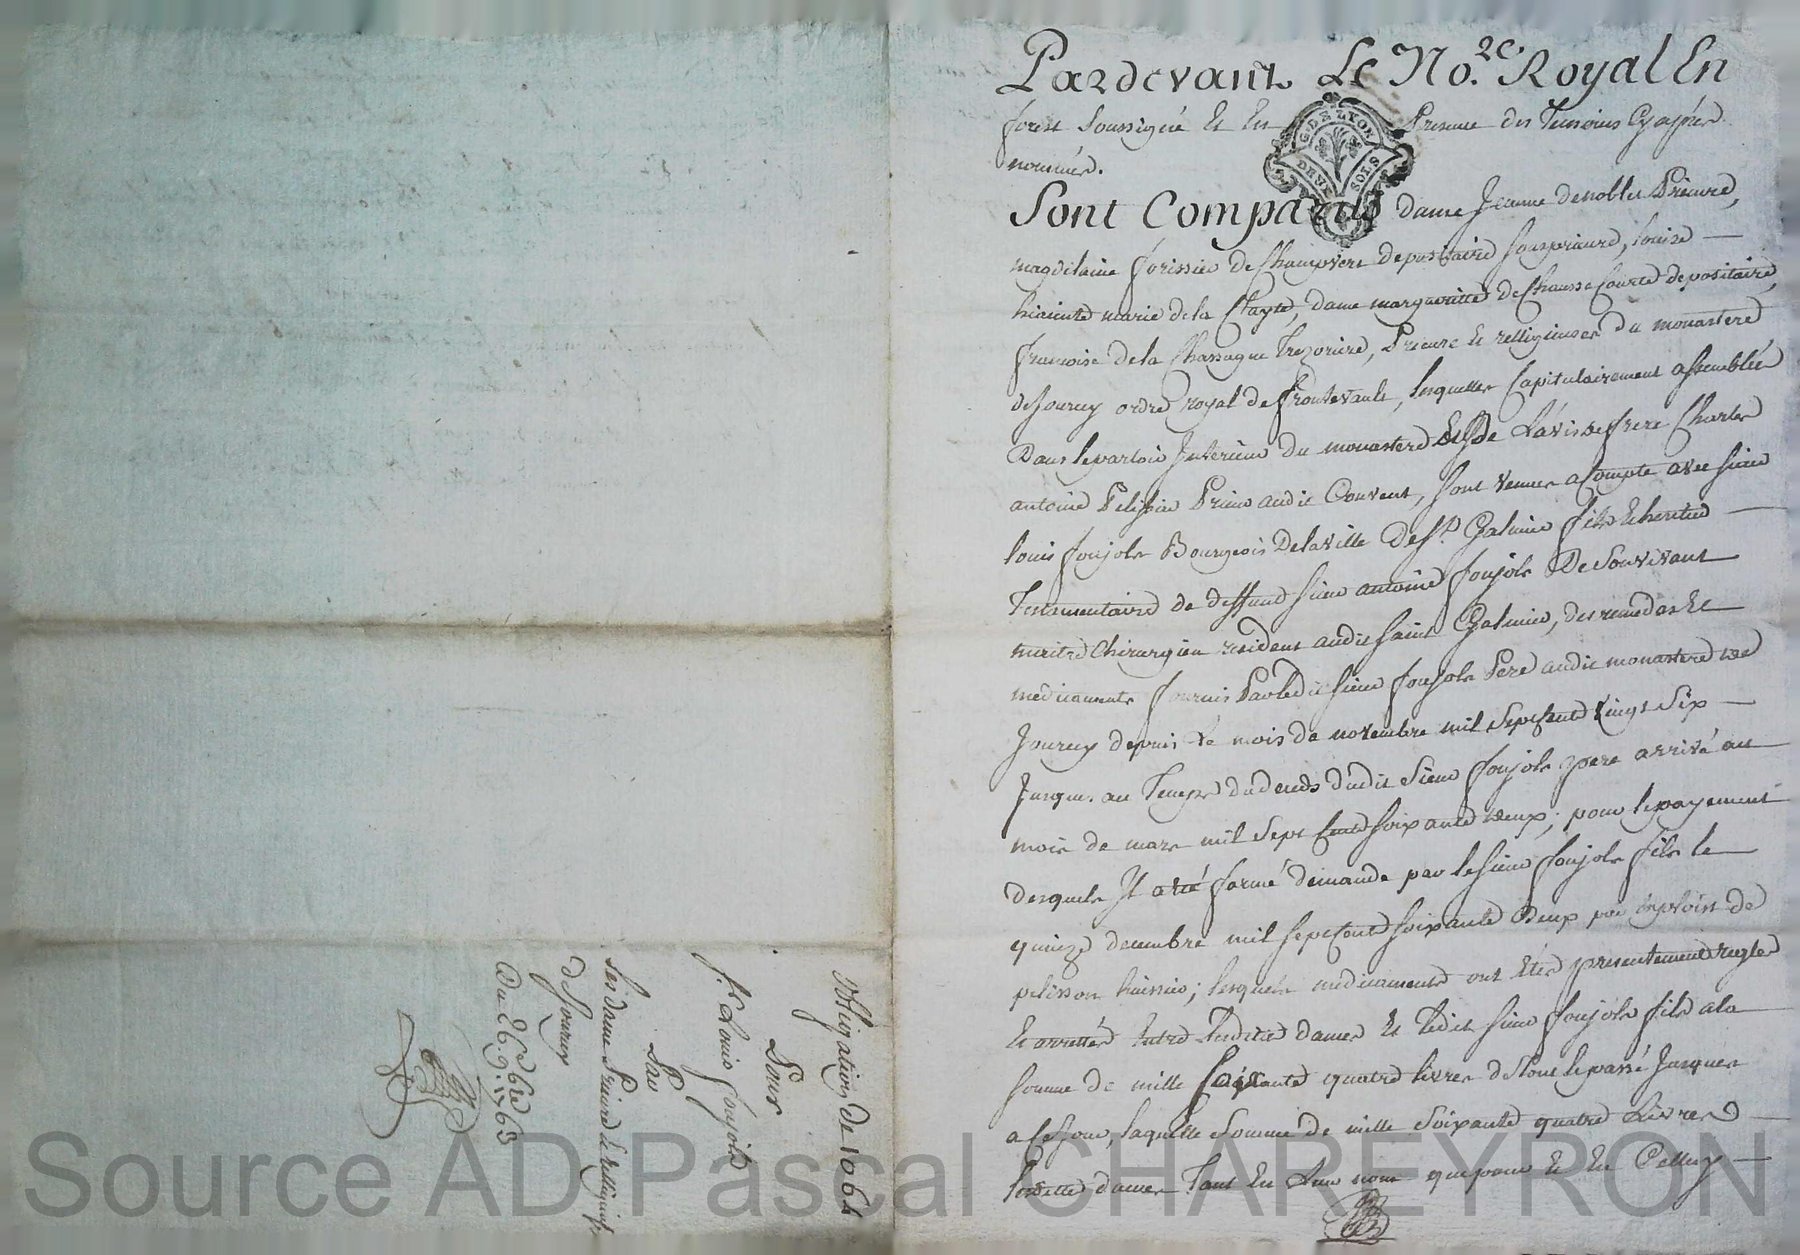 Pardevant Le No.re Royal En
forest Soussigné Et En Presence des Temoins Cyaprés
nommés.
G. DE LYON
DEUX SOLS
Sont Comparus dame Jeanne denobles Prieure,
magdelaine forissier de Champvert depositaire Sousprieure, Louise
hiacinte marie de la Clayte, dame margueritte de Chaussecourte depositaire,
francoise de la Chassagne Trezoriere, Prieure Et relligieuses du monastere
de Jourcey ordre royal de frontevault, lesquelles Capitulairement assemblées
Dans leparloir Interieur du monastere Et de Lavis de frere Charles
antoine Pelissier Prieur audit Couvent, sont venues a Compte avec sieur
louis foujols Bourgeois Delaville de St. Galmier fils Et heritier
Testamentaire de deffunt sieur antoine foujols De Sonvivant
maitre Chirurgien resident audit Saint Galmier, des remedes Et
medicaments fournis Par ledit sieur foujols Pere audit monastere de
Jourcey depuis Le mois de novembre mil Septcent Vingt Six
Jusques au Temps du deceds dudit Sieur foujols pere arrivé au
mois de mars mil Sept Cent Soixante deux; pour lepayement
desquels Il a eté formé demande par le sieur foujols fils le
quinze decembre mil sept Cent soixante Deux par exploit de
pelisson huissier; lesquels medicaments ont Etés presentement reglés
Et arrettés Entre lesdittes dames Et ledit sieur foujols fils a la
somme de mille Soixante quatre livres de tout lepassé Jusques
a Cejour, laquelle Somme de mille Soixante quatre Livres
lesdittes dames Tant En Leur nom que pour Et En Celluy
Obligation de 1064
Pour
Sr. Louis foujols
Par
Les dames Prieure Et relligieuses
de Jourcey
Du 26. 9bre 1763
Source AD Pascal CHAREYRON